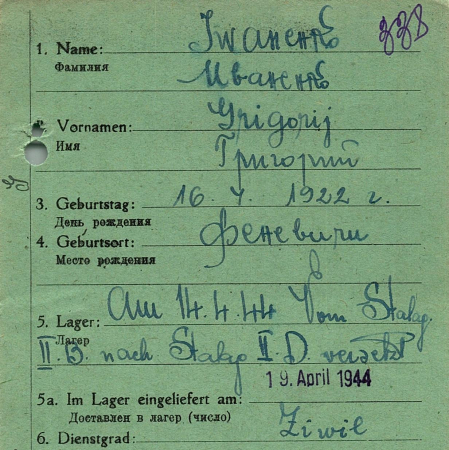 Iwanenko 338
1. Name:
Фамилия
Иваненко
Grigorij
Vornamen:
Имя
Григорий
3. Geburtstag: 16. 7. 1922 г.
День рождения
4. Geburtsort: Феневичи
Место рождения
Am 14.4.44 Vom Stalag.
5. Lager:
Лагер
II. B. nach Stalag II. D. versetzt
19. April 1944
5a. Im Lager eingeliefert am:
Доставлен в лагер (число)
Ziwil
6. Dienstgrad: